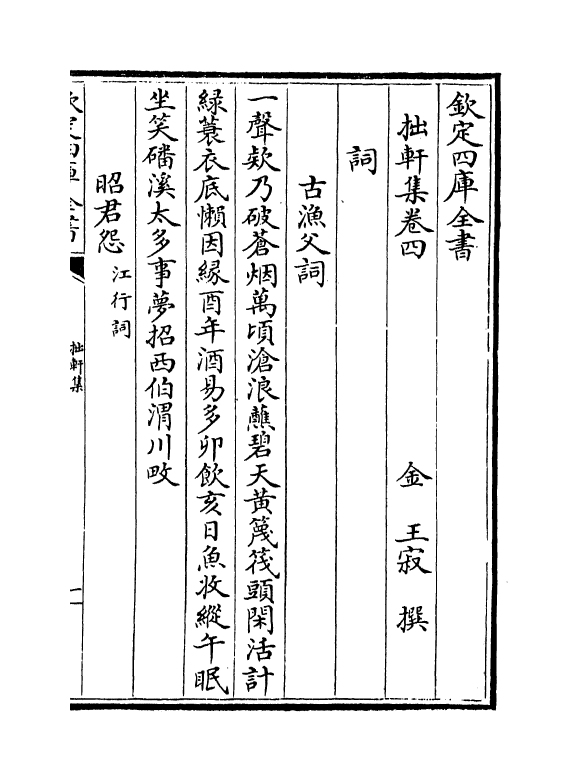 欽定四庫全書
拙軒集卷四
金 王寂 撰
詞
古漁父詞
一聲欸乃破蒼烟萬頃滄浪蘸碧天黄篾筏頭閑活計
緑蓑衣底懶因緣酉年酒易多卯飲亥日魚收縱午眠
坐笑磻溪太多事夢招西伯渭川畋
昭君怨江行詞
拙軒集